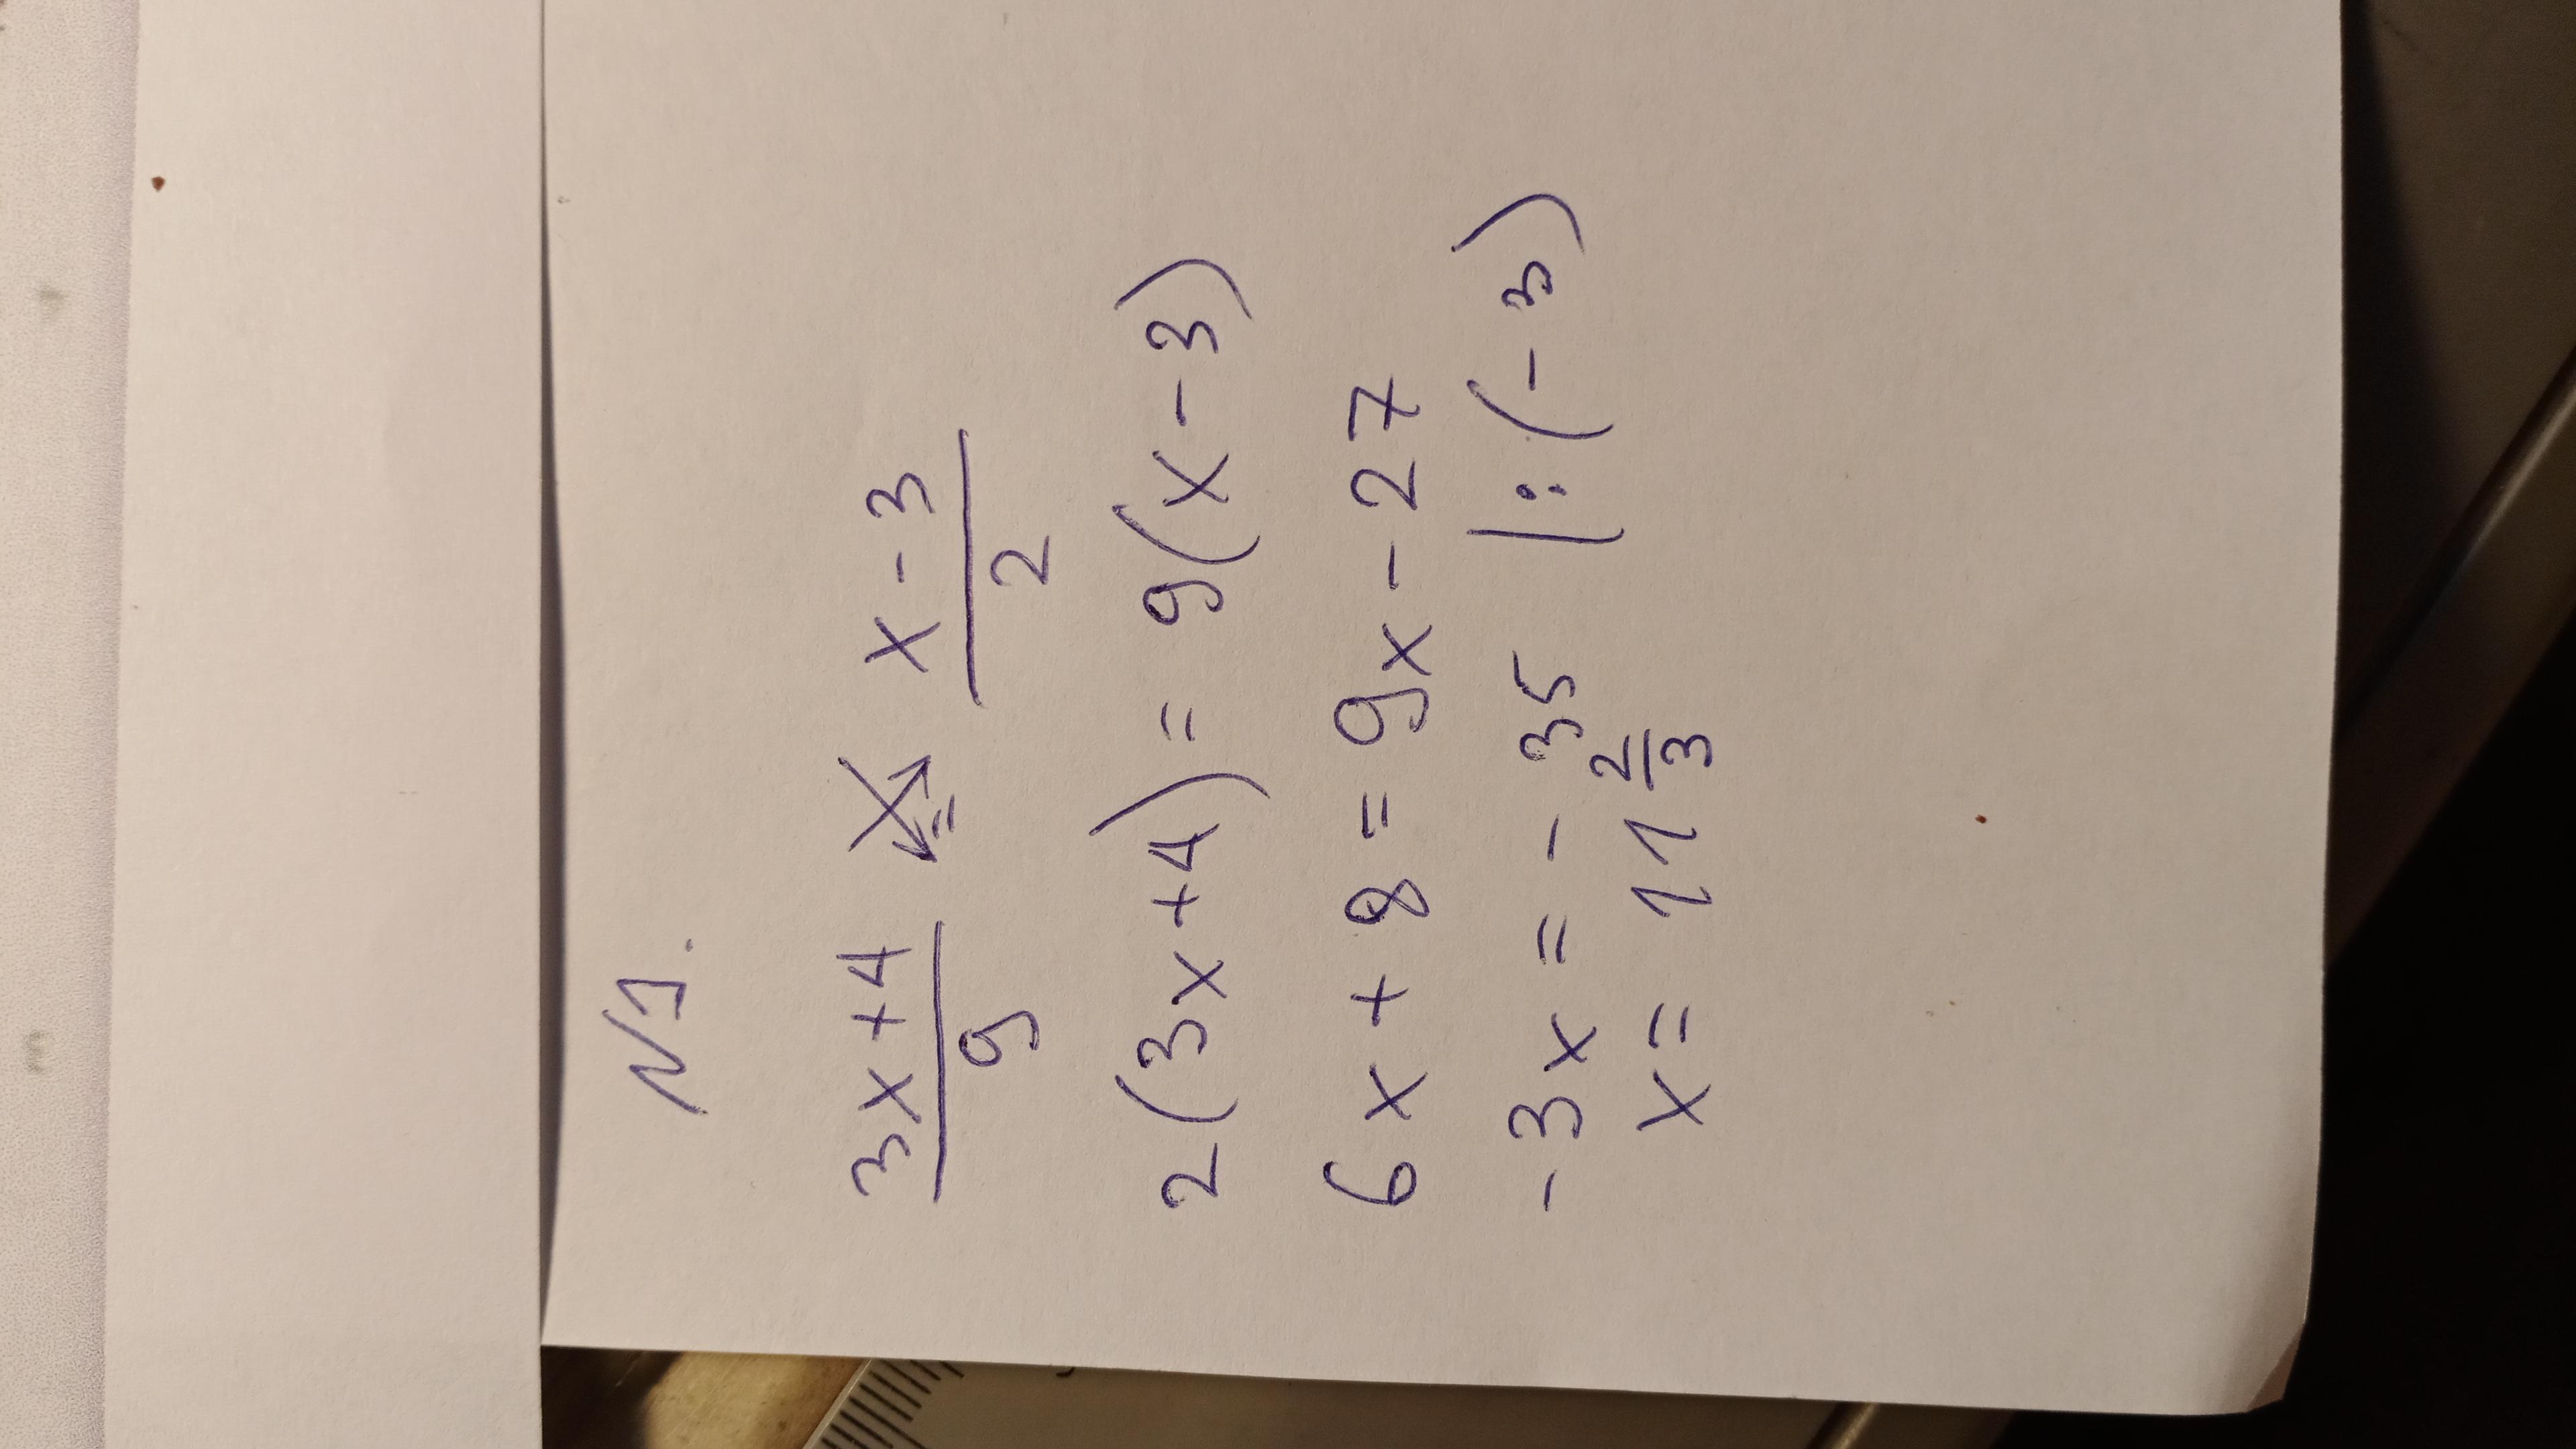 N1.
(3x+4)/9 = (x-3)/2
2(3x+4) = 9(x-3)
6x + 8 = 9x - 27
-3x = -35 |:(-3)
x = 11 2/3